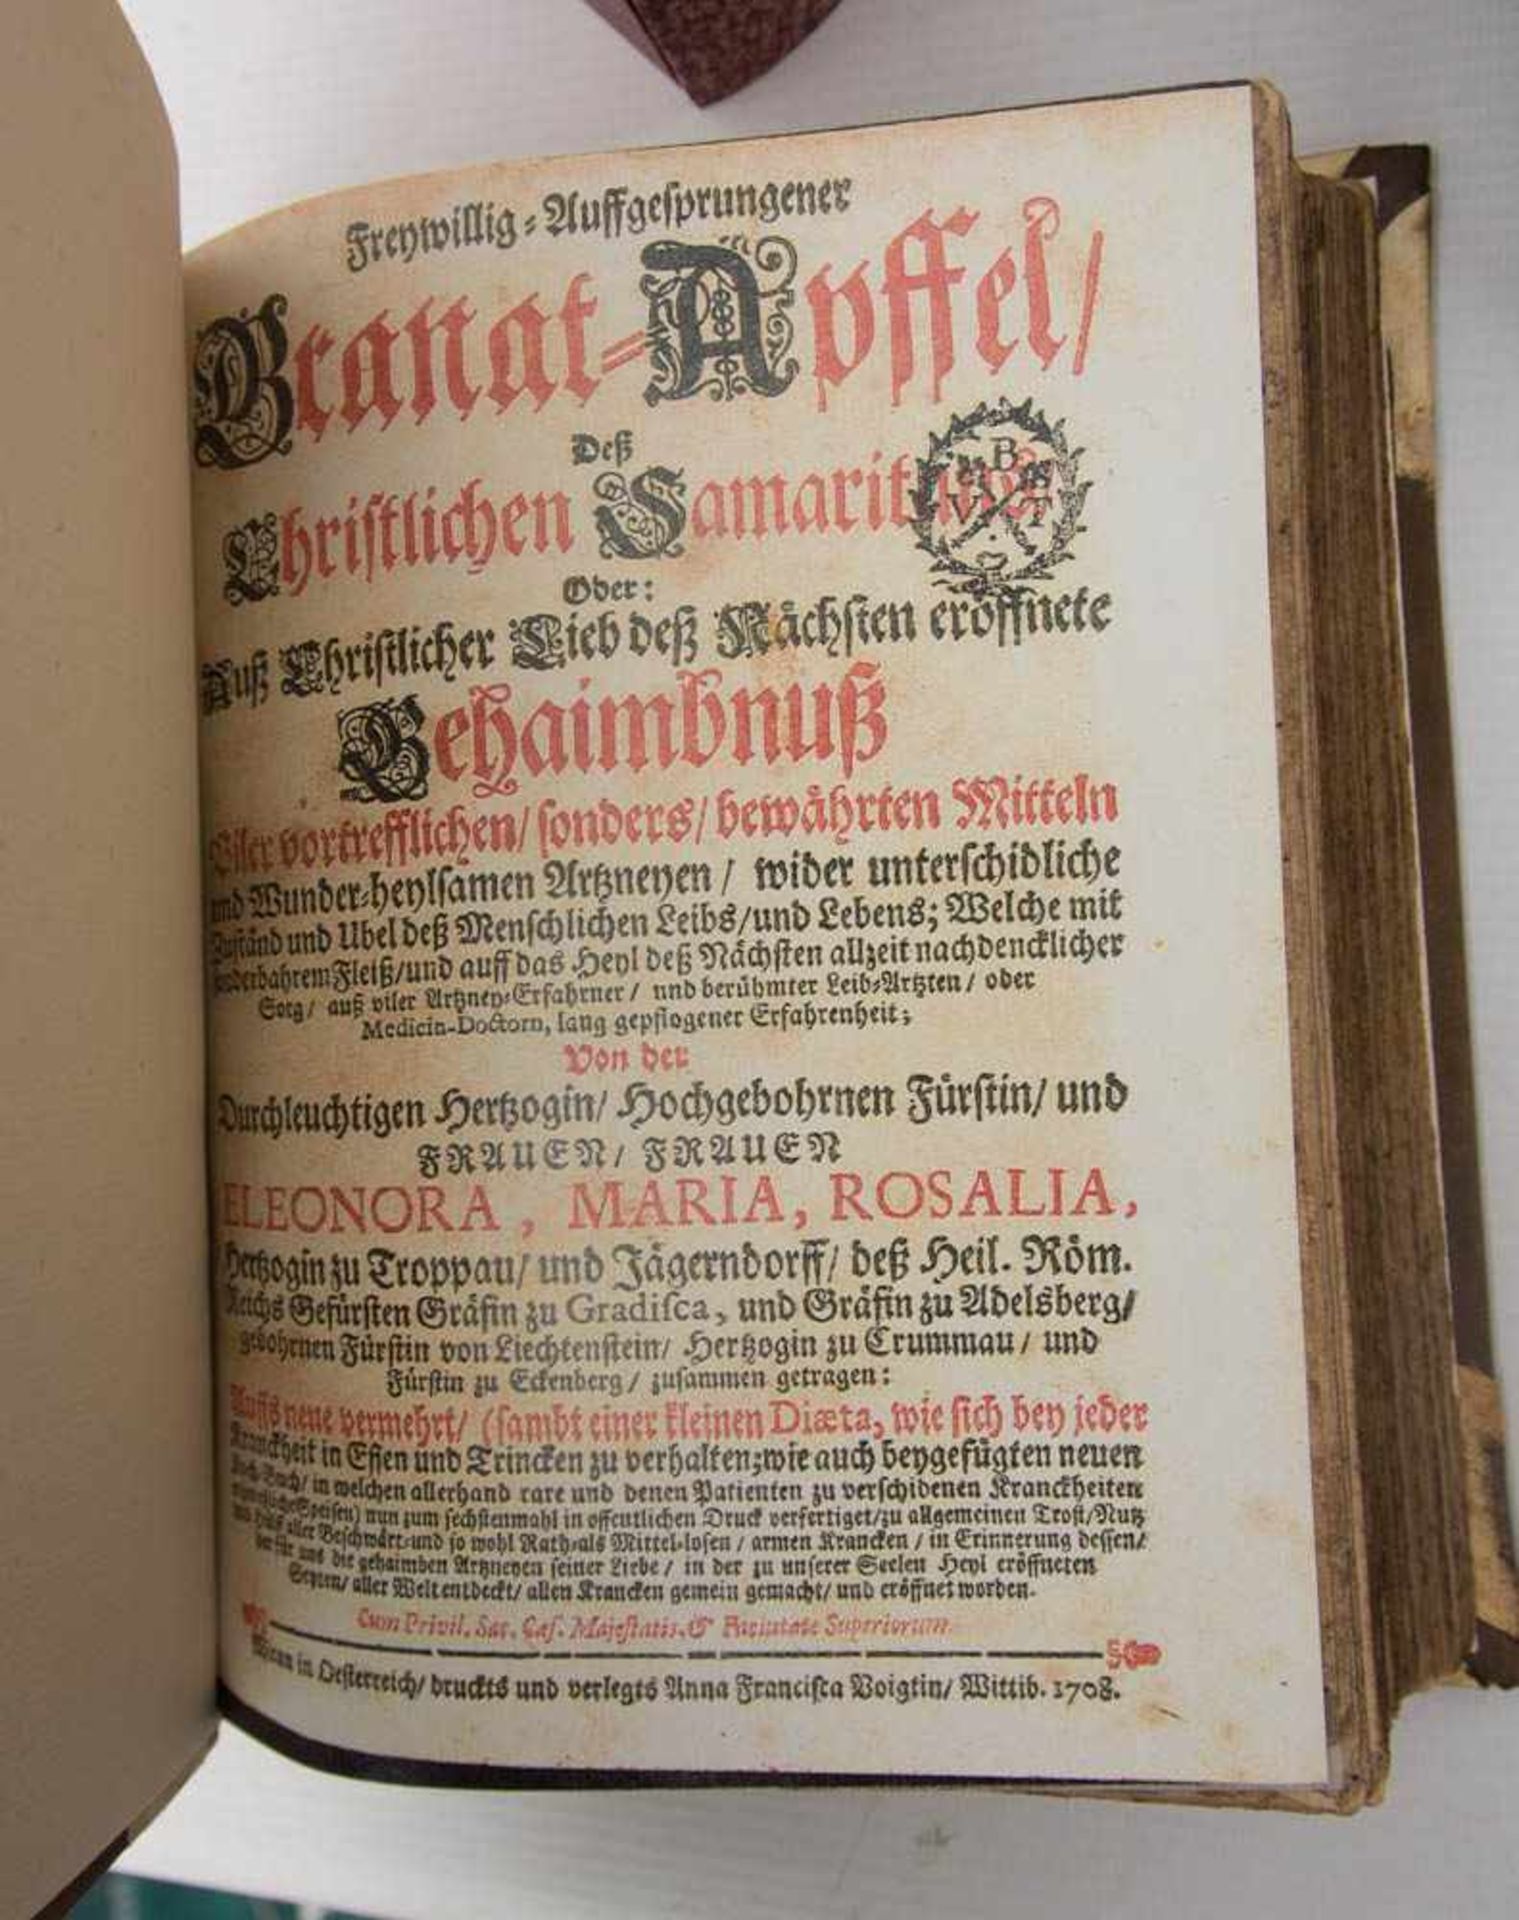 Freywillig-Auffgesprungener
Granat-Apffel/
Deß
Christlichen Samaritans/
B
V T
Oder:
Auß Christlicher Lieb deß Nächsten eröffnete
Gehaimbnuß
Viler vortrefflichen/ sonders/ bewährten Mitteln
und Wunder-heylsamen Artzneyen/ wider unterschidliche
Zuständ und Ubel deß Menschlichen Leibs/und Lebens; Welche mit
sonderbahrem Fleiß/und auff das Heyl deß Nächsten allzeit nachdencklicher
Sorg/ auß viler Artzney-Erfahrner/ und berühmter Leib-Artzten/ oder
Medicin-Doctorn, lang gepflogener Erfahrenheit;
Von der
Durchleuchtigen Hertzogin/ Hochgebohrnen Fürstin/ und
FRAUEN/ FRAUEN
ELEONORA, MARIA, ROSALIA,
Hertzogin zu Troppau/ und Jägerndorff/ deß Heil. Röm.
Reichs Gefürsten Gräfin zu Gradisca, und Gräfin zu Adelsberg/
gebohrnen Fürstin von Liechtenstein/ Hertzogin zu Crummau/ und
Fürstin zu Eckenberg/ zusammen getragen:
Auffs neue vermehrt/ (sambt einer kleinen Diæta, wie sich bey jeder
Kranckheit in Essen und Trincken zu verhalten; wie auch beygefügten neuen
Koch-Buch/ in welchen allerhand rare und denen Patienten zu verschidenen Kranckheiten
Speisen) nun zum sechstenmahl in offentlichen Druck verfertiget/zu allgemeinen Trost/Nutz
und Hülff aller Beschwärt-und so wohl Rath-als Mittel-losen/ armen Krancken/ in Erinnerung dessen/
der für uns die gehaimben Artzneyen seiner Liebe/ in der zu unserer Seelen Heyl eröffneten
Seyten/ aller Welt entdeckt/ allen Krancken gemein gemacht/ und eröffnet worden.
Cum Privil. Sac. Cæs. Majestatis. & Facultate Superiorum.
Wienn in Oesterreich/ druckts und verlegts Anna Francisca Voigtin/ Wittib. 1708.